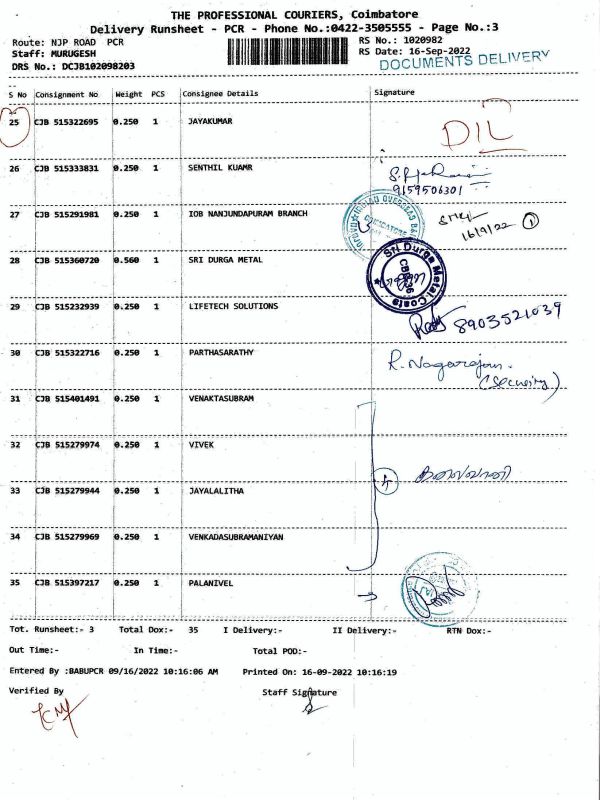 THE PROFESSIONAL COURIERS, Coimbatore
Delivery Runsheet - PCR - Phone No.:0422-3505555 - Page No.:3
Route: NJP ROAD PCR
RS No.: 1020982
Staff: MURUGESH
RS Date: 16-Sep-2022
DRS No.: DCJB102098203
DOCUMENTS DELIVERY
S No Consignment No Weight PCS Consignee Details Signature
25 CJB 515322695 0.250 1 JAYAKUMAR
DIL
26 CJB 515333831 0.250 1 SENTHIL KUAMR
9159506301
27 CJB 515291981 0.250 1 IOB NANJUNDAPURAM BRANCH
16/9/22 1
28 CJB 515360720 0.560 1 SRI DURGA METAL
Sri Durga Metal
29 CJB 515232939 0.250 1 LIFETECH SOLUTIONS
8903521039
30 CJB 515322716 0.250 1 PARTHASARATHY
R. Nagarajan.
(Security)
31 CJB 515401491 0.250 1 VENAKTASUBRAM
32 CJB 515279974 0.250 1 VIVEK
4
33 CJB 515279944 0.250 1 JAYALALITHA
34 CJB 515279969 0.250 1 VENKADASUBRAMANIYAN
35 CJB 515397217 0.250 1 PALANIVEL
Tot. Runsheet:- 3 Total Dox:- 35 I Delivery:- II Delivery:- RTN Dox:-
Out Time:- In Time:- Total POD:-
Entered By :BABUPCR 09/16/2022 10:16:06 AM Printed On: 16-09-2022 10:16:19
Verified By Staff Signature